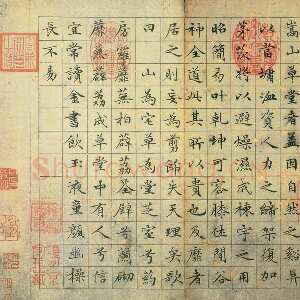 嵩山草堂者盖因自然之谿
以當墉洫資人力之締架復加
茅茨將以避燥濕成棟宇之用
昭簡易叶乾坤可容膝休谷
神全道此其所以貴也及靡者
居之則妄為剪飾失天理矣歌
曰山為宅兮草為堂芝室兮葯
房羅蘼蕪拍薜荔荃壁兮蘭砌
蘼蕪薜荔成草堂中有人兮信
宜常讀金書飲玉液童顏幽操
長不易